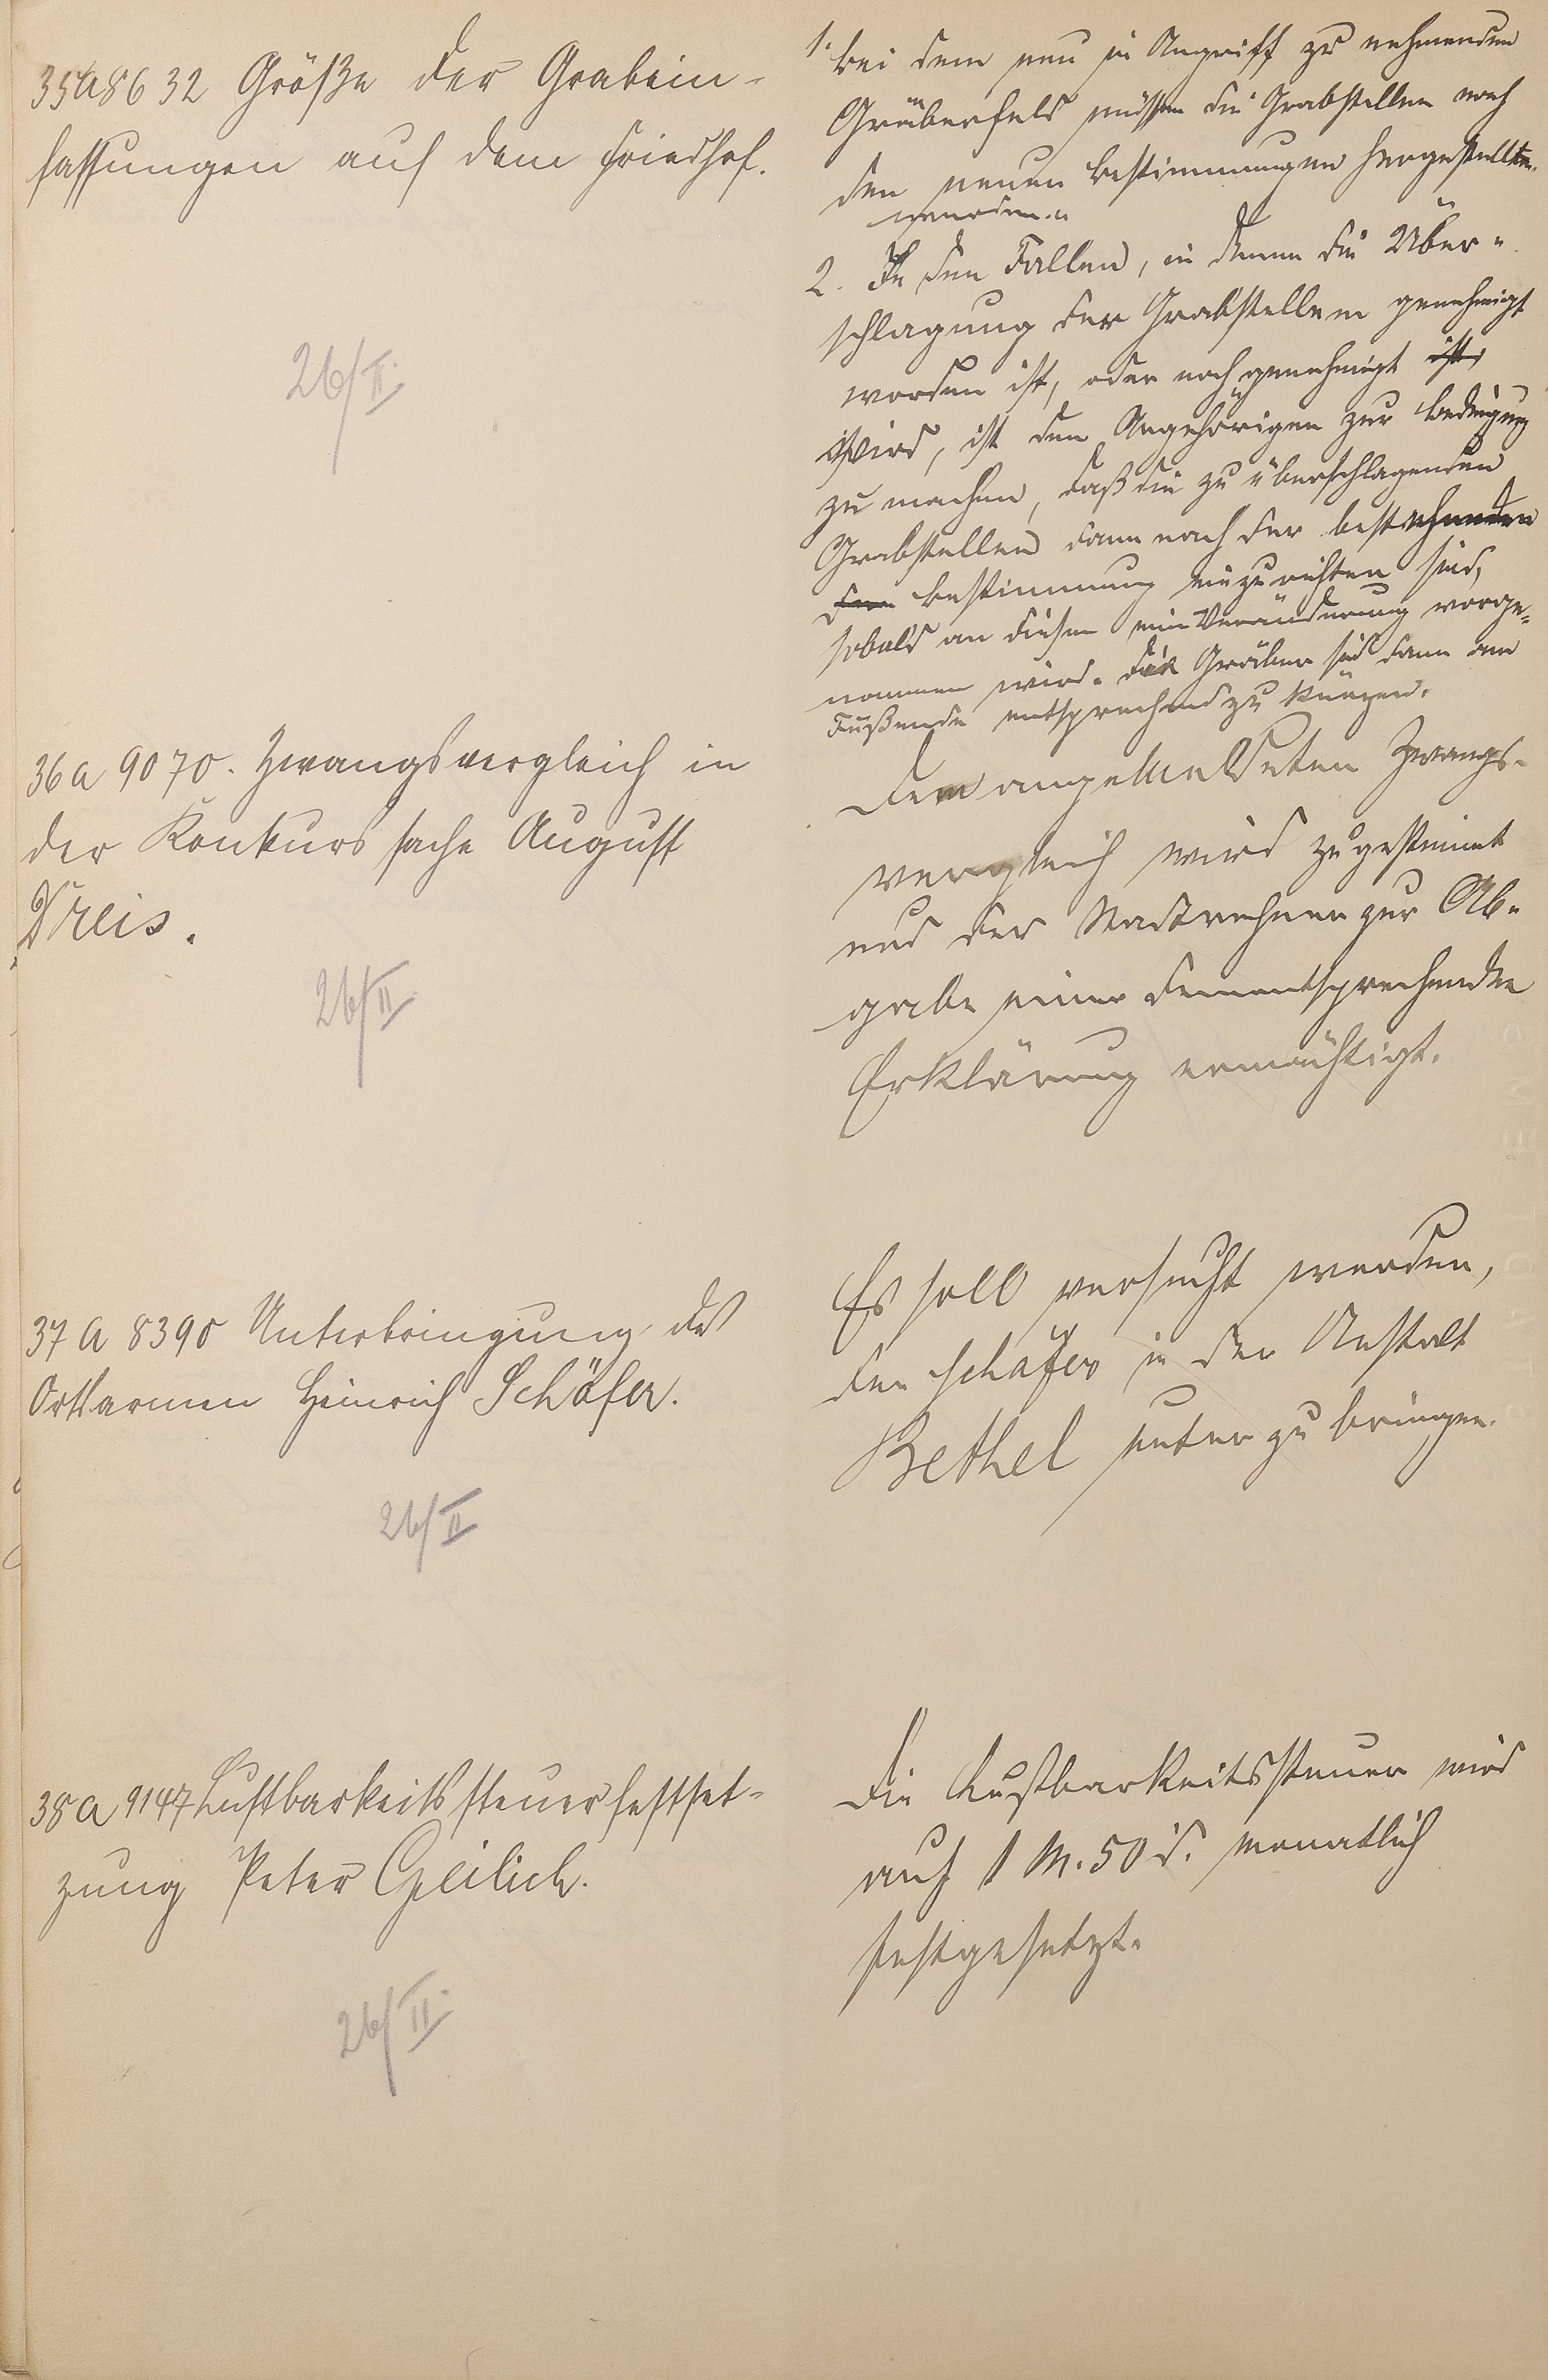 35 A 8632 Größe der Grabein-
fassungen auf dem Friedhof.
26/II.
1. Bei dem neu in Angriff zu nehmenden
Gräberfeld müssen die Grabstellen nach
den neuen Bestimmungen hergestellt
werden.
2. In den Fällen, in denen die Über-
schlagung der Grabstellen genehmigt
worden ist, oder noch genehmigt ist,
wird, ist den Angehörigen zur Bedingung
zu machen, daß die zu überschlagenden
Grabstellen dann nach der bestehenden
den Bestimmung einzurichten sind,
sobald an diesen eine Veränderung vorge-
nommen wird. Die Gräber sind dann am
Fußende entsprechend zu kürzen.
36 A 9070. Zwangsvergleich in
der Konkurssache August
Kreis.
26/II
Dem angemeldeten Zwangs-
vergleich wird zugestimmt
und der Stadtrechner zur Ab-
gabe einer dementsprechenden
Erklärung ermächtigt.
37 A 8390 Unterbringung des
Ortsarmen Heinrich Schäfer.
26/II
Es soll versucht werden,
den Schäfer in der Anstalt
Bethel unter zu bringen.
38 A 9147 Lustbarkeitssteuerfestset-
zung Peter Geilich.
26/II.
Die Lustbarkeitssteuer wird
auf 1 M. 50 d. monatlich
festgesetzt.